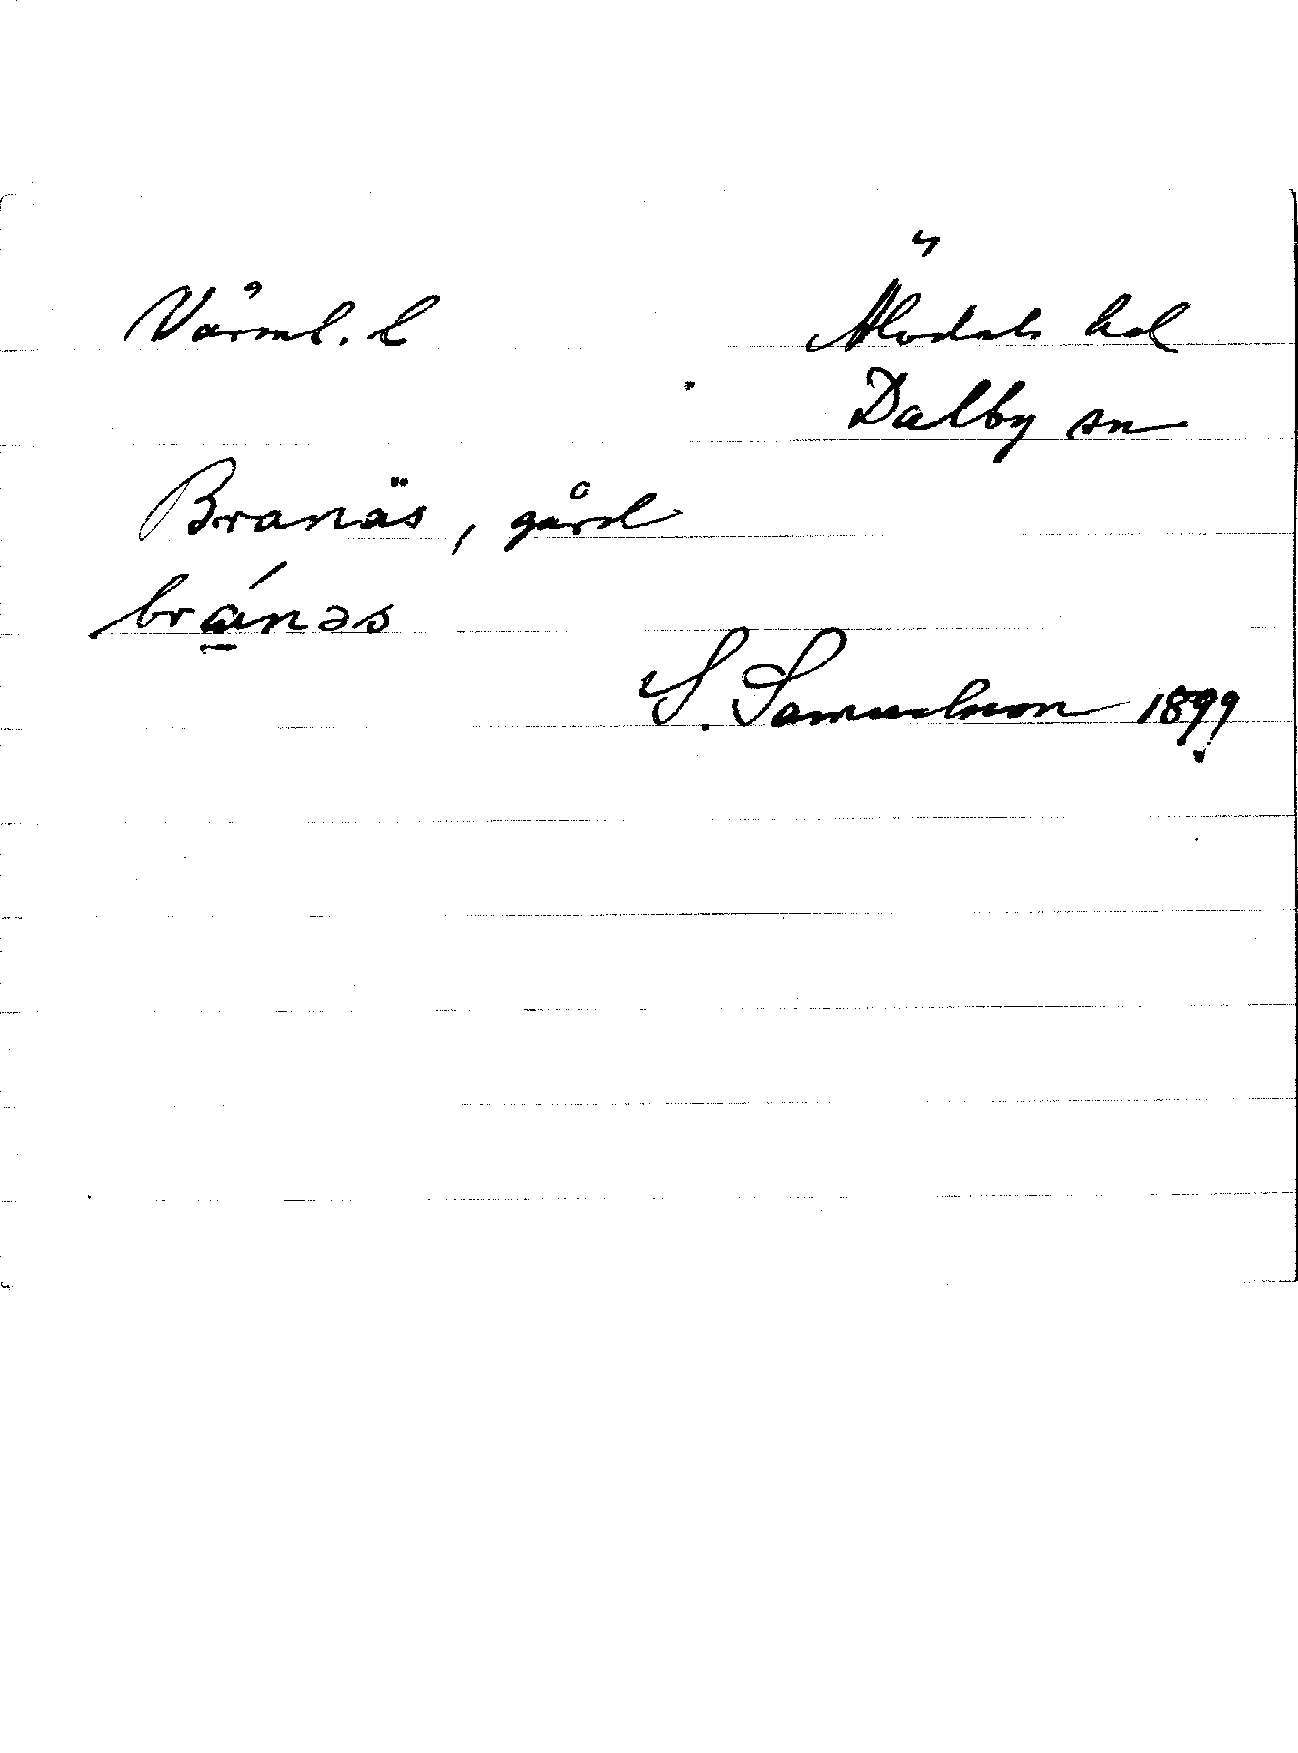 Värml. l Älvdals hd
Dalby sn
Branäs, gård
brá̲nəs
S. Samuelsson 1899